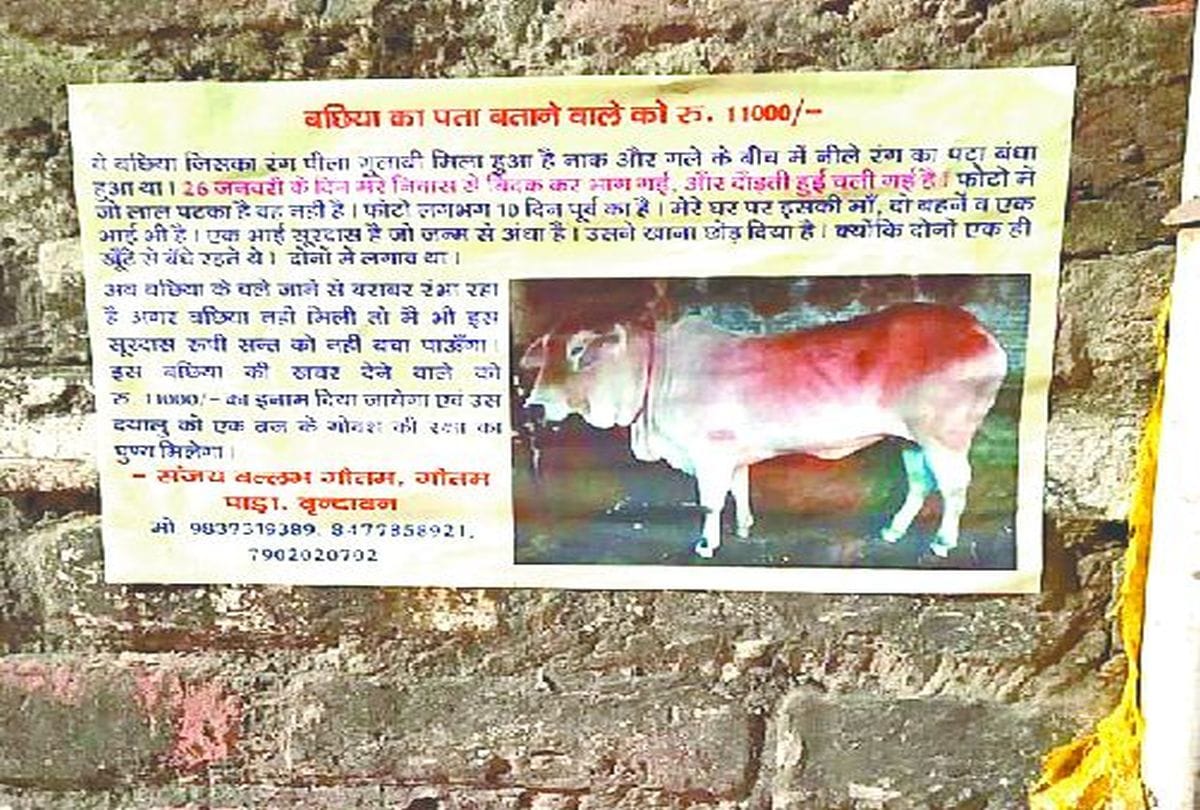 बछिया का पता बताने वाले को रु. 11000/-
ये बछिया जिसका रंग पीला गुलाबी मिला हुआ है नाक और गले के बीच में नीले रंग का पटा बंधा
हुआ था। 26 जनवरी के दिन मेरे निवास से बिदक कर भाग गई, और दौड़ती हुई चली गई है। फोटो में
जो लाल पटका है वह नहीं है। फोटो लगभग 10 दिन पूर्व का है। मेरे घर पर इसकी माँ, दो बहनें व एक
भाई भी है। एक भाई सूरदास है जो जन्म से अंधा है। उसने खाना छोड़ दिया है। क्योंकि दोनों एक ही
खूँटे से बँधे रहते थे। दोनों में लगाव था।
अब बछिया के चले जाने से बराबर रंभा रहा
है अगर बछिया नहीं मिली तो मैं भी इस
सूरदास रुपी सन्त को नहीं बचा पाऊँगा।
इस बछिया की खबर देने वाले को
रु. 11000/- का इनाम दिया जायेगा एवं उस
दयालु को एक ब्रज के गोवंश की रक्षा का
पुण्य मिलेगा।
- संजय बल्लभ गौतम, गौतम
पाड़ा, वृन्दावन
मो. 9837319389, 8477858921,
7902020702